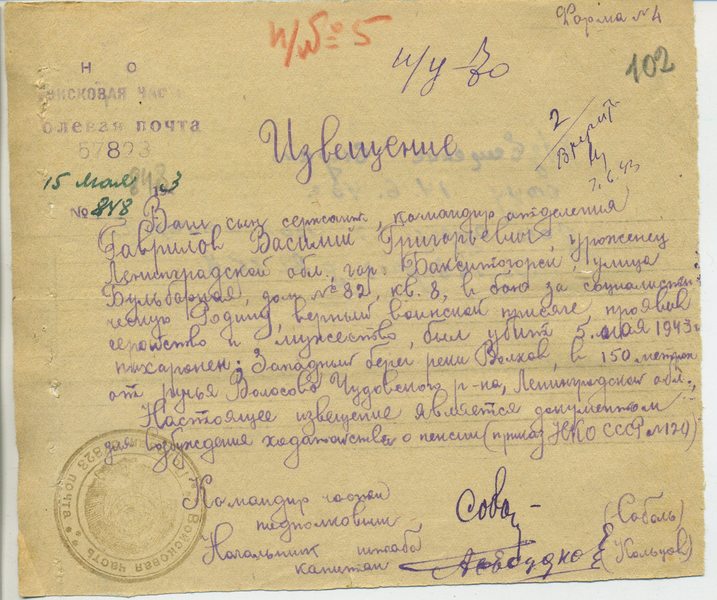 Форма №4
п/№ 5
и/у 70
102
Н К О
ВОИНСКОВАЯ ЧАСТЬ
полевая почта
57823
15 мая 1943
№ 848
Извещение
2
7.6.43
Ваш сын сержант, командир отделения
Гаврилов Василий Григорьевич, уроженец
Ленинградской обл., гор. Бакситогорск, улица
Бульбарная, дом № 82, кв. 8, в бою за социалисти-
ческую Родину, верный воинской присяге, проявив
геройство и мужество, был убит 5 мая 1943 г
похоронен: Западный берег реки Волхов, в 150 метрах
от ручья Волосово Чудовского р-на, Ленинградской обл.,
Настоящее извещение является документом
для возбуждения ходатайства о пенсии (приказ НКО СССР №120)
Командир части
подполковник
(Соболь)
Начальник штаба
капитан
(Кольцов)
ВОЙСКОВАЯ ЧАСТЬ
ПОЧТА